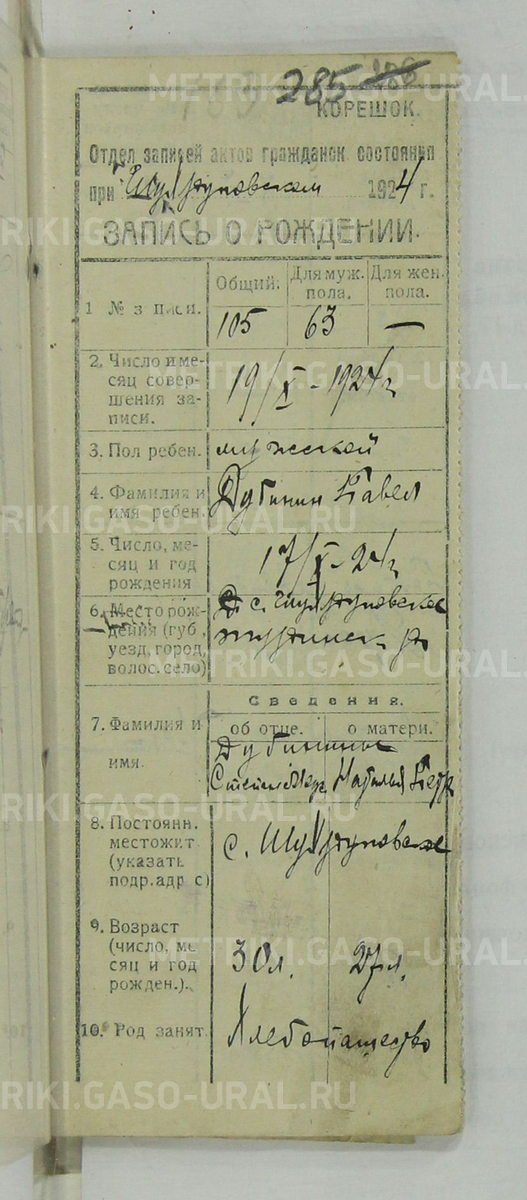 285 286
КОРЕШОК.
Отдел записей актов гражданск состояния
при 1924 г.
ЗАПИСЬ О РОЖДЕНИИ.
1 № з писи.
Общий. Для муж. пола. Для жен. пола.
105 63 —
2. Число и месяц совершения записи.
19/X - 1924 г
3. Пол ребен.
мужской
4. Фамилия и имя ребен.
Дубинин Павел
5. Число, месяц и год рождения
17/X - 24 г
6. Место рождения (губ, уезд, город, волос. село)
с.
Сведения.
7. Фамилия и имя.
об отце. о матери.
Дубинины
Наталья Петр
8. Постоянн. местожит (указать подр. адр с)
с.
9. Возраст (число, ме сяц и год рожден.).
30 л. 27 л.
10. Род занят.
Хлебопашество
METRIKI.GASO-URAL.RU